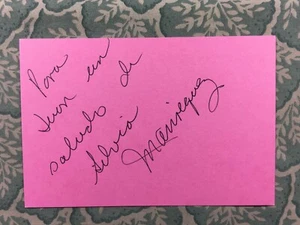 Para
Juan un
saludo de
Silvia
Manriquez